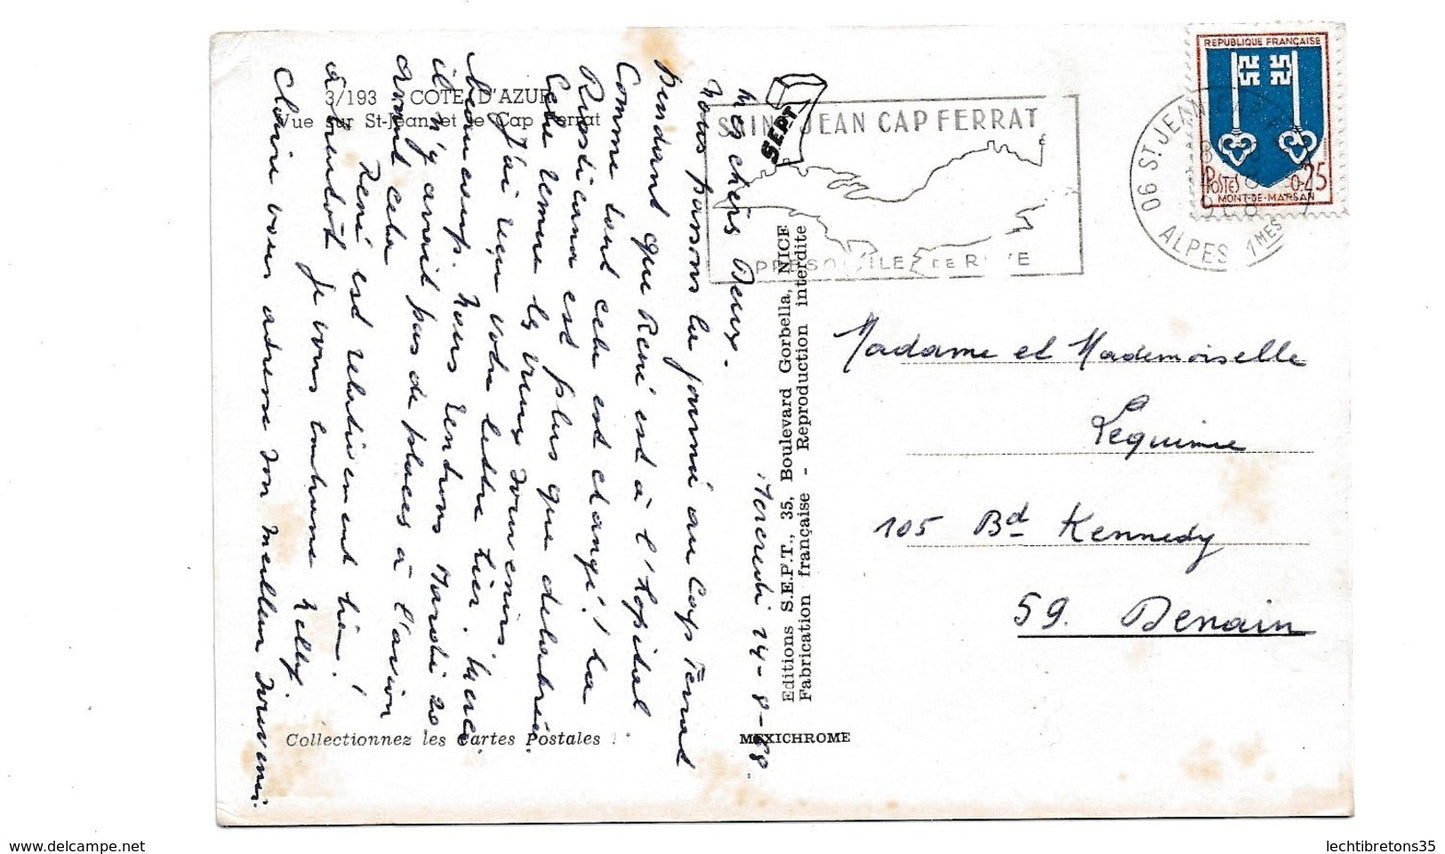 3/193 COTE D'AZUR
Vue sur St-Jean et le Cap Ferrat
Mercredi 14-8-68
Mes chers Deux.
Nous passons la journée au Cap Ferrat
Pendant que René est à l'Hopital
Comme tout cela est changé! La
est plus que délabrée
Cela remue les vieux souvenirs.
J'ai reçu votre lettre hier. Merci
beaucoup. Nous rentrons Mardi 20
il n'y avait pas de places à l'avion
avant cela
René est relativement bien!
à bientôt je vous embrasse Nelly.
Claire vous adresse son meilleur souvenir.
Collectionnez les Cartes Postales !
Editions S.E.P.T., 35, Boulevard Gorbella, NICE
Fabrication française - Reproduction interdite
MEXICHROME
SEPT
SAINT JEAN CAP FERRAT
PRESQU'ILE DE REVE
06 ST JEAN
ALPES MMES
REPUBLIQUE FRANÇAISE
POSTES 0,25
MONT-DE-MARSAN
Madame et Mademoiselle
Lequimie
105 Bd Kennedy
59. Denain
delcampe.net
lechtibretons35